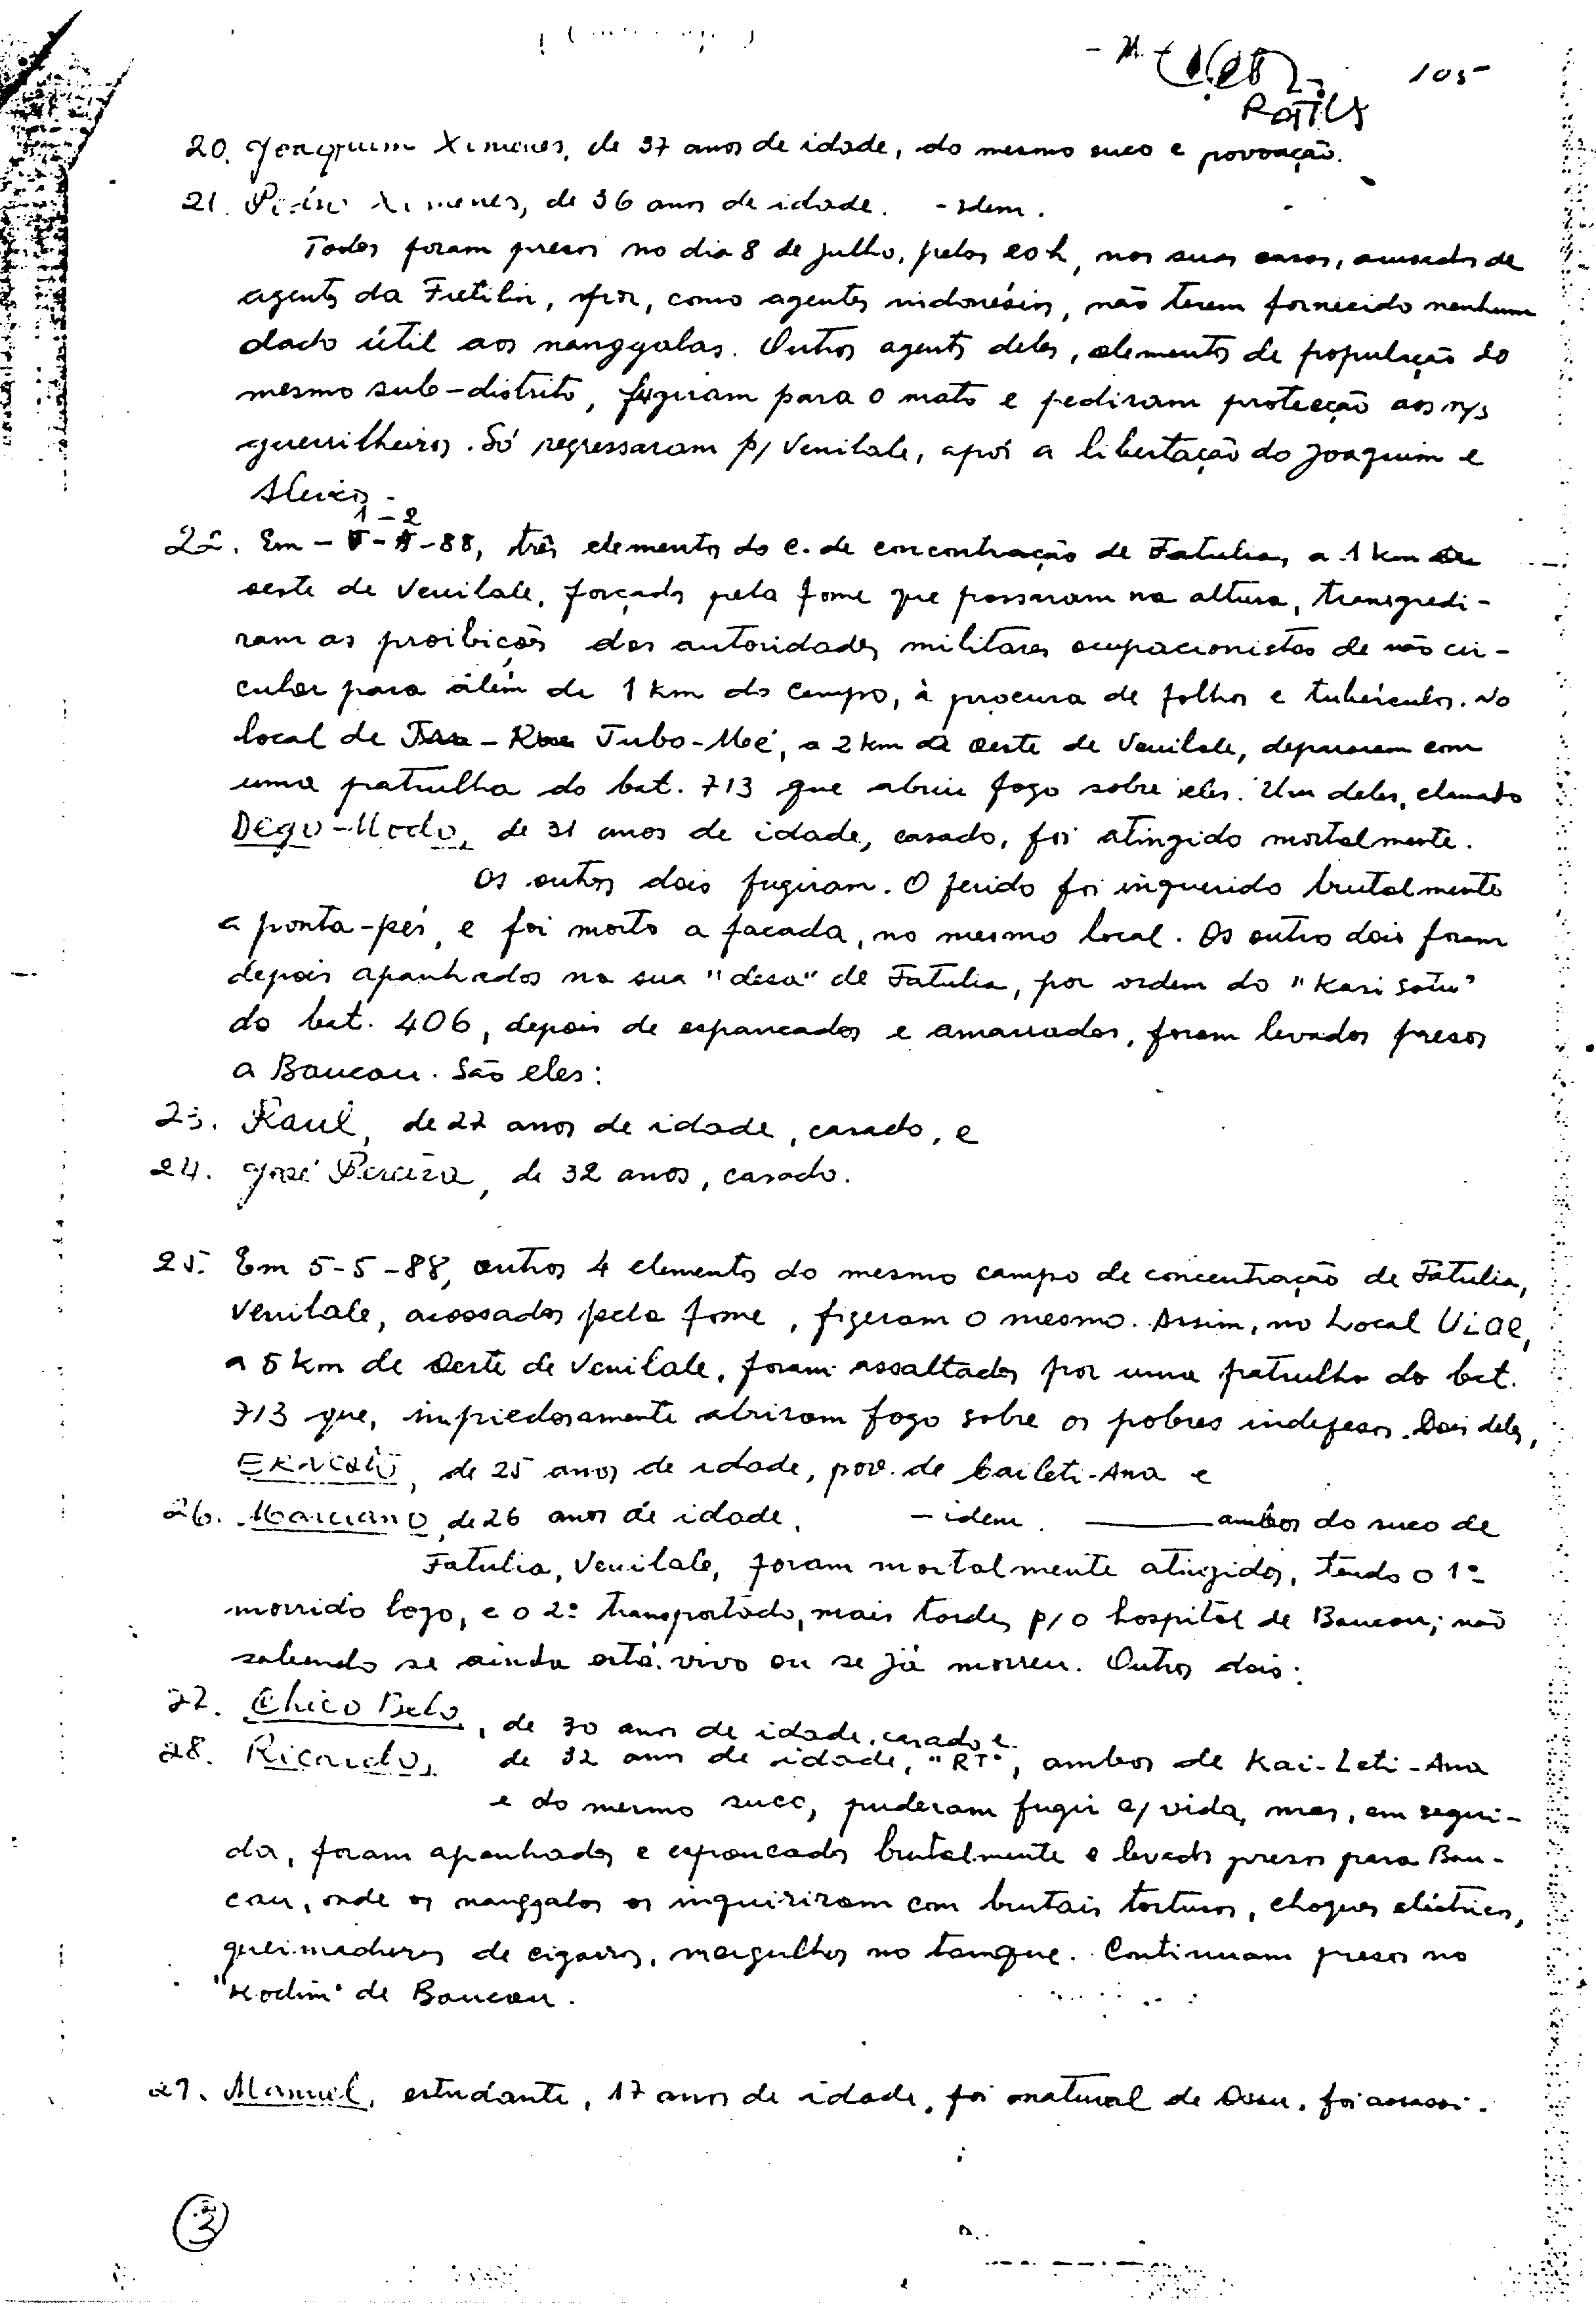 105
20. Joaquim Ximenes, de 37 anos de idade, do mesmo suco e povoação.
21. Ximenes, de 36 anos de idade. - Idem.
Todos foram presos no dia 8 de Julho, pelas 20h, nas suas casas, acusados de
agentes da Fretilin, e por, como agentes indonésios, não terem fornecido nenhum
dado útil aos nanggalas. Outros agentes deles, elementos de população do
mesmo sub-distrito, fugiram para o mato e pediram protecção aos n/s
guerrilheiros. Só regressaram p/ Venilale, após a libertação do Joaquim e
Aleixo.
22. Em 1-2-88, três elementos do c. de concontração de Fatulia, a 1 km
oeste de Venilale, forçados pela fome que passaram na altura, transgredi-
ram as proibições das autoridades militares ocupacionistas de não cir-
cular para além de 1 km do campo, à procura de folhas e tubérculos. No
local de Tubo-Moé, a 2 km a Oeste de Venilale, depararam com
uma patrulha do bat. 713 que abriu fogo sobre eles. Um deles, chamado
Dego-Modo, de 31 anos de idade, casado, foi atingido mortalmente.
Os outros dois fugiram. O ferido foi inquerido brutalmente
a ponta-pés, e foi morto a facada, no mesmo local. Os outro dois foram
depois apanhados na sua "desa" de Fatulia, por ordem do "Kasi Satu"
do bat. 406, depois de espancados e amarrados, foram levados presos
a Baucau. São eles:
23. Raul, de 27 anos de idade, casado, e
24. José Pereira, de 32 anos, casado.
25. Em 5-5-88, outros 4 elementos do mesmo campo de concentração de Fatulia,
Venilale, acossados pela fome, fizeram o mesmo. Assim, no Local Uiae,
a 5 km de Oeste de Venilale, foram assaltados por uma patrulha do bat.
713 que, impiedosamente abriram fogo sobre os pobres indefesos. Dois deles,
de 25 anos de idade, pov. de Caileti-Ana e
26. Marciano, de 26 anos de idade, - idem. ambos do suco de
Fatulia, Venilale, foram mortalmente atingidos, tendo o 1º
morrido logo, e o 2º transportado, mais tarde, p/ o hospital de Baucau; não
sabendo se ainda está vivo ou se já morreu. Outros dois:
27. Chico Belo, de 30 anos de idade, casado e
28. Ricardo, de 32 anos de idade, "RT", ambos de Kai-Leti-Ana
e do mesmo suco, puderam fugir c/ vida, mas, em segui-
da, foram apanhados e espancados brutalmente e levados presos para Bau-
cau, onde os nanggalas os inquiriram com brutais torturas, choques eléctricos,
queimaduras de cigarros, mergulhos no tanque. Continuam presos no
"Kodim" de Baucau.
29. Manuel, estudante, 17 anos de idade, foi natural de Ossu, foi assassi-
3